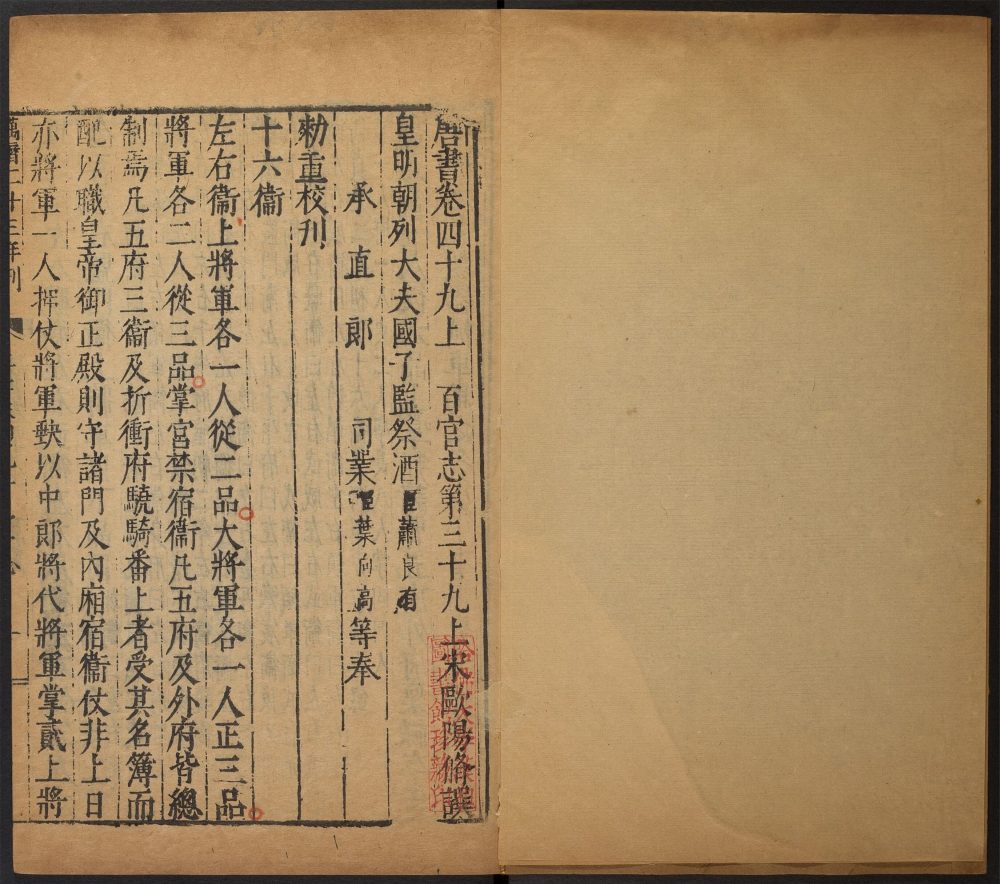 唐書卷四十九上　百官志第三十九上宋歐陽脩譔
皇明朝列大夫國子監祭酒臣蕭良有
承直郎　司業臣葉向高等奉
勑重校刋
十六衞
左右衞上將軍各一人從二品大將軍各一人正三品
將軍各二人從三品掌宮禁宿衞凡五府及外府皆總
制焉凡五府三衞及折衝府驍騎番上者受其名簿而
配以職皇帝御正殿則守諸門及內廂宿衞仗非上日
亦將軍一人押仗將軍缺以中郎將代將軍掌貳上將
萬曆二十三年刊